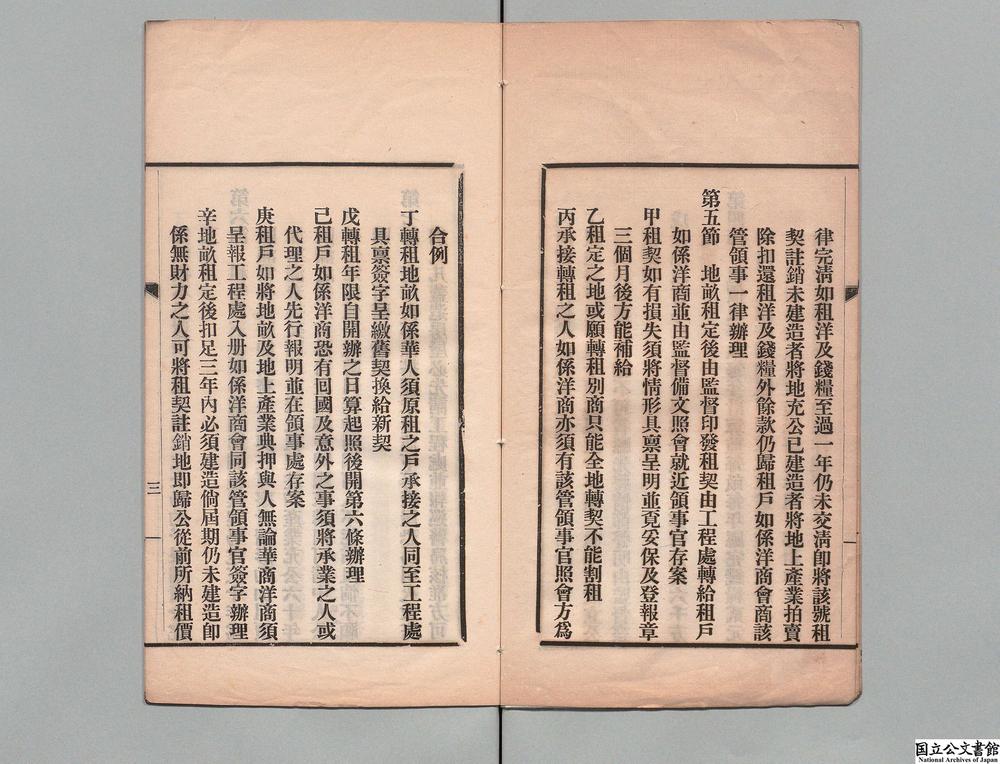 律完清如租洋及錢糧至過一年仍未交清卽將該號租
契註銷未建造者將地充公已建造者將地上產業拍賣
除扣還租洋及錢糧外餘款仍歸租戶如係洋商會商該
管領事一律辦理
第五節　地畝租定後由監督印發租契由工程處轉給租戶
如係洋商並由監督備文照會就近領事官存案
甲租契如有損失須將情形具稟呈明並覓妥保及登報章
三個月後方能補給
乙租定之地或願轉租別商只能全地轉契不能割租
丙承接轉租之人如係洋商亦須有該管領事官照會方爲
合例
丁轉租地畝如係華人須原租之戶承接之人同至工程處
具稟簽字呈繳舊契換給新契
戊轉租年限自開辦之日算起照後開第六條辦理
己租戶如係洋商恐有回國及意外之事須將承業之人或
代理之人先行報明並在領事處存案
庚租戶如將地畝及地上產業典押與人無論華商洋商須
呈報工程處入册如係洋商會同該管領事官簽字辦理
辛地畝租定後扣足三年內必須建造倘屆期仍未建造卽
係無財力之人可將租契註銷地卽歸公從前所納租價
三
国立公文書館
National Archives of Japan